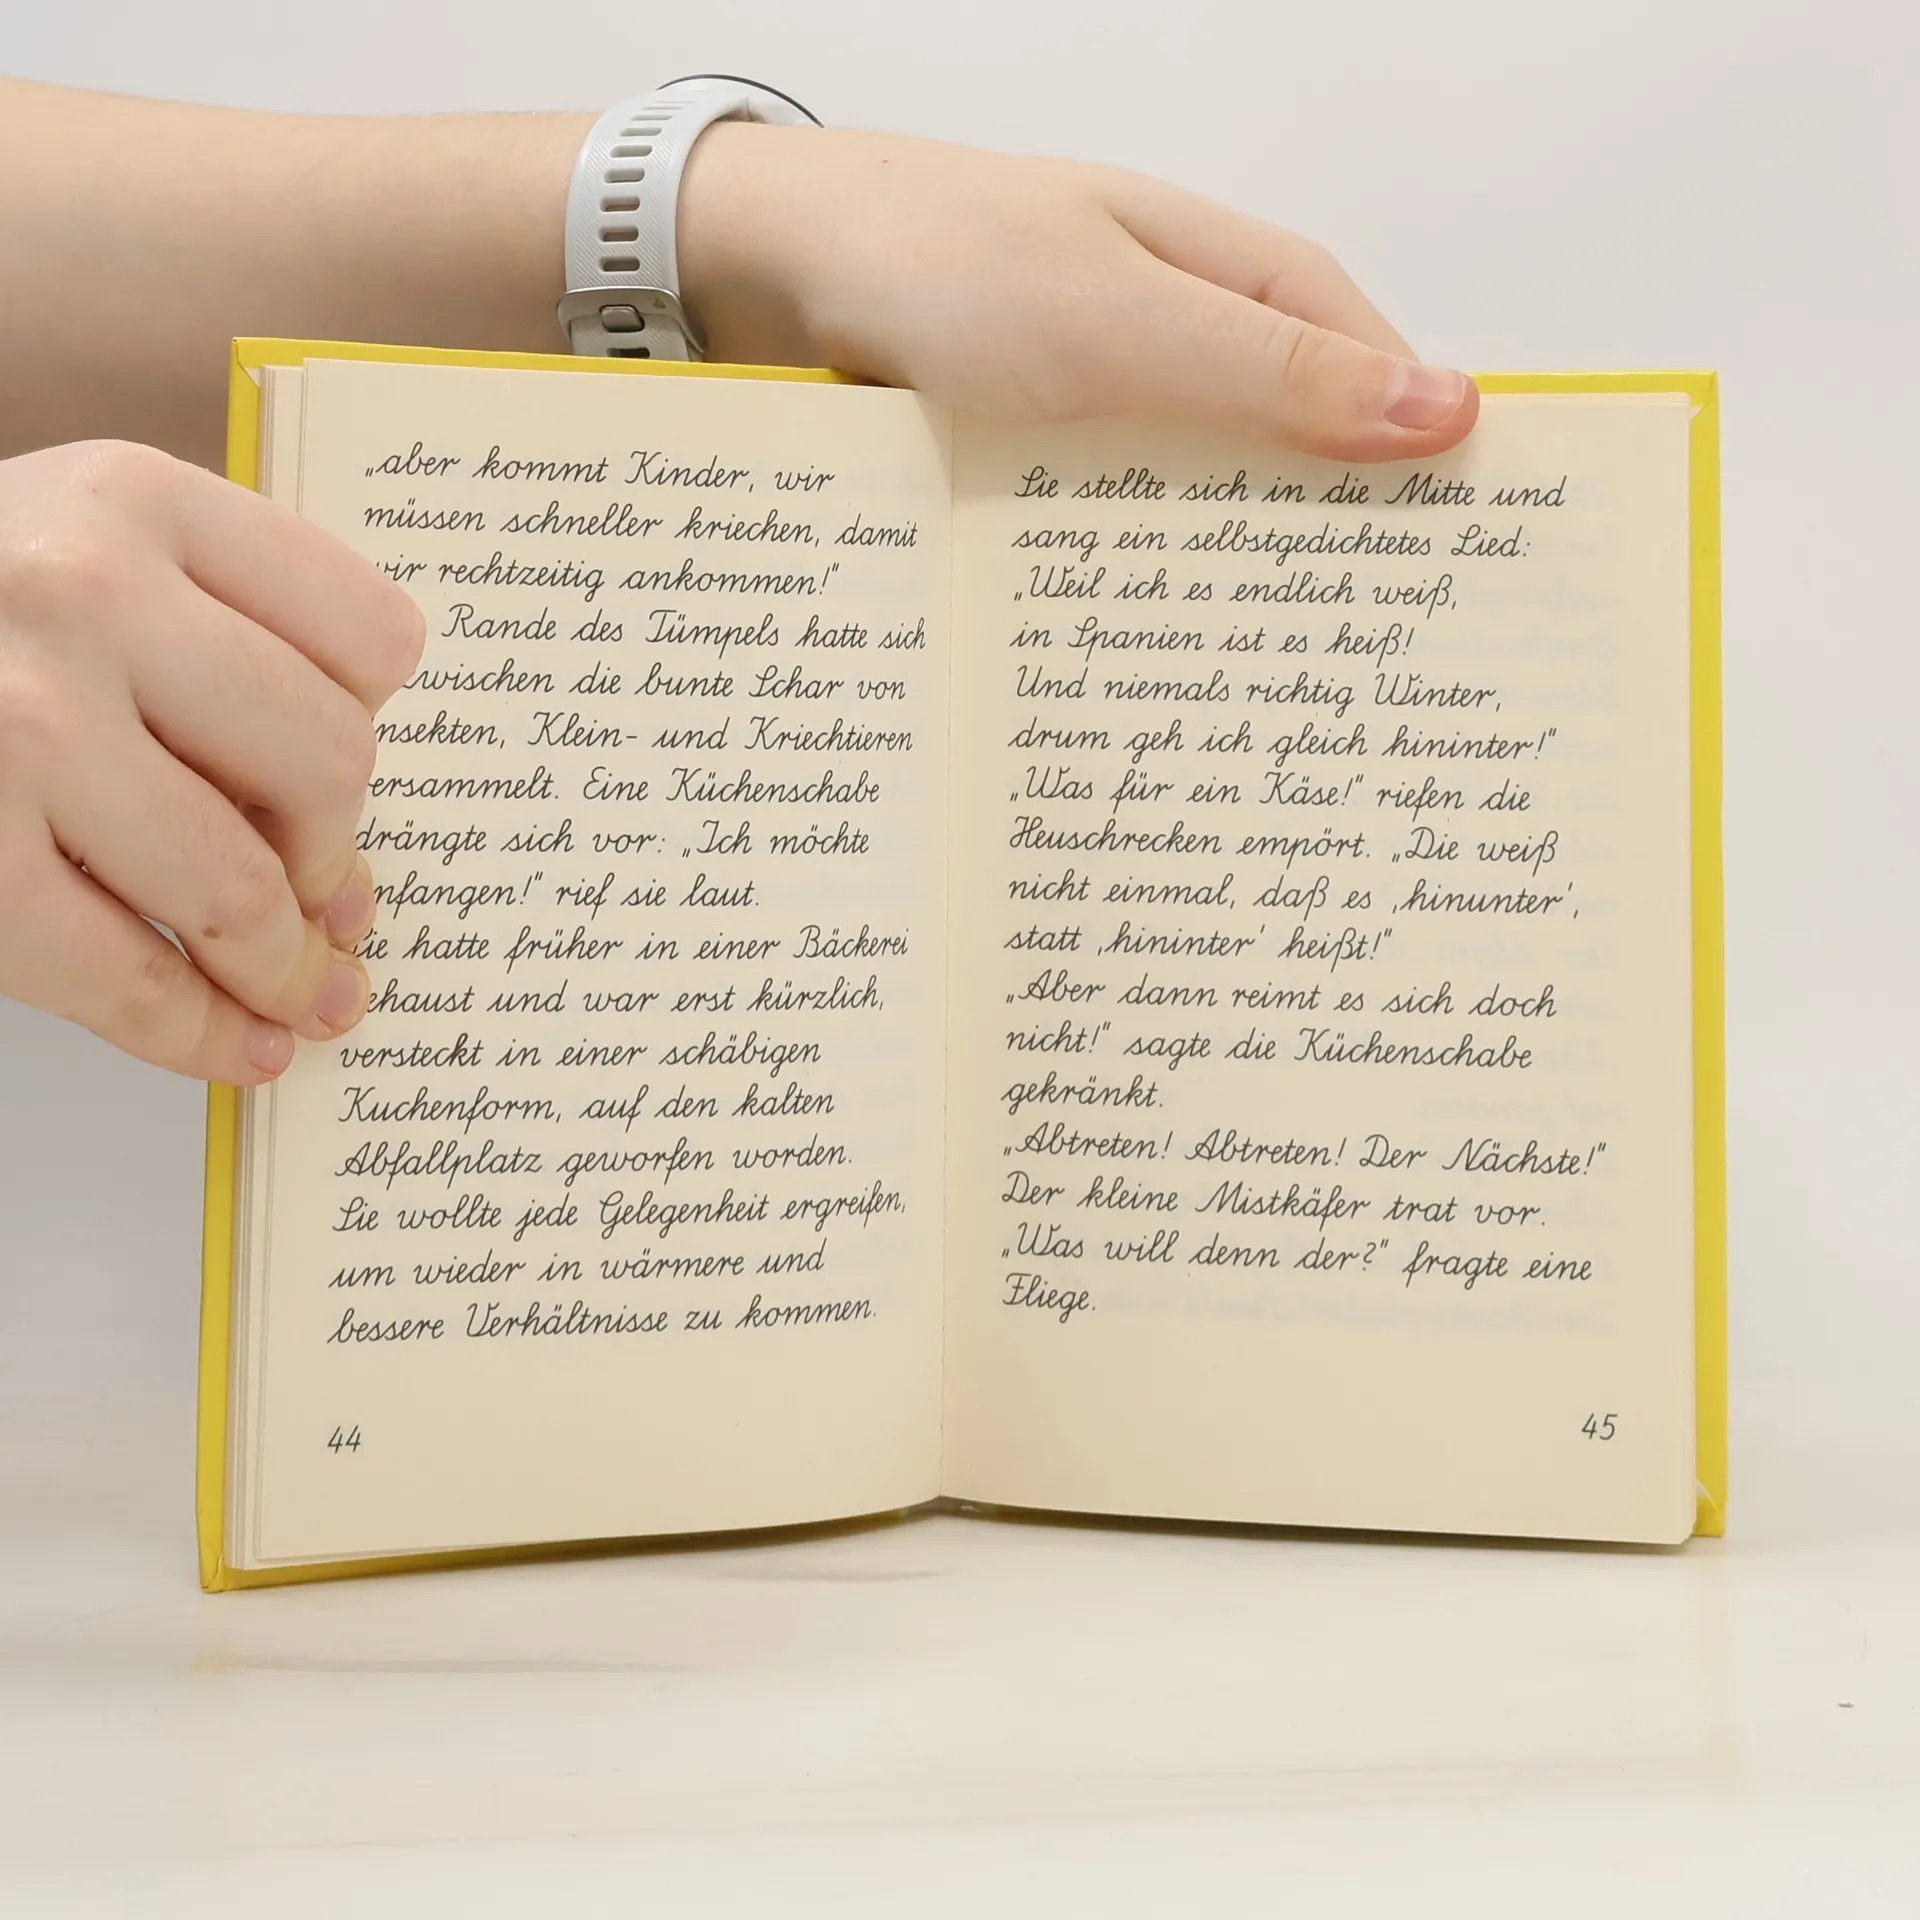 „aber kommt Kinder, wir
müssen schneller kriechen, damit
wir rechtzeitig ankommen!"
Rande des Tümpels hatte sich
zwischen die bunte Schar von
Insekten, Klein- und Kriechtieren
versammelt. Eine Küchenschabe
drängte sich vor: „Ich möchte
anfangen!" rief sie laut.
Sie hatte früher in einer Bäckerei
gehaust und war erst kürzlich,
versteckt in einer schäbigen
Kuchenform, auf den kalten
Abfallplatz geworfen worden.
Sie wollte jede Gelegenheit ergreifen,
um wieder in wärmere und
bessere Verhältnisse zu kommen.
44
Sie stellte sich in die Mitte und
sang ein selbstgedichtetes Lied:
„Weil ich es endlich weiß,
in Spanien ist es heiß!
Und niemals richtig Winter,
drum geh ich gleich hininter!"
„Was für ein Käse!" riefen die
Heuschrecken empört. „Die weiß
nicht einmal, daß es ‚hinunter',
statt ‚hininter' heißt!"
„Aber dann reimt es sich doch
nicht!" sagte die Küchenschabe
gekränkt.
„Abtreten! Abtreten! Der Nächste!"
Der kleine Mistkäfer trat vor.
„Was will denn der?" fragte eine
Fliege.
45